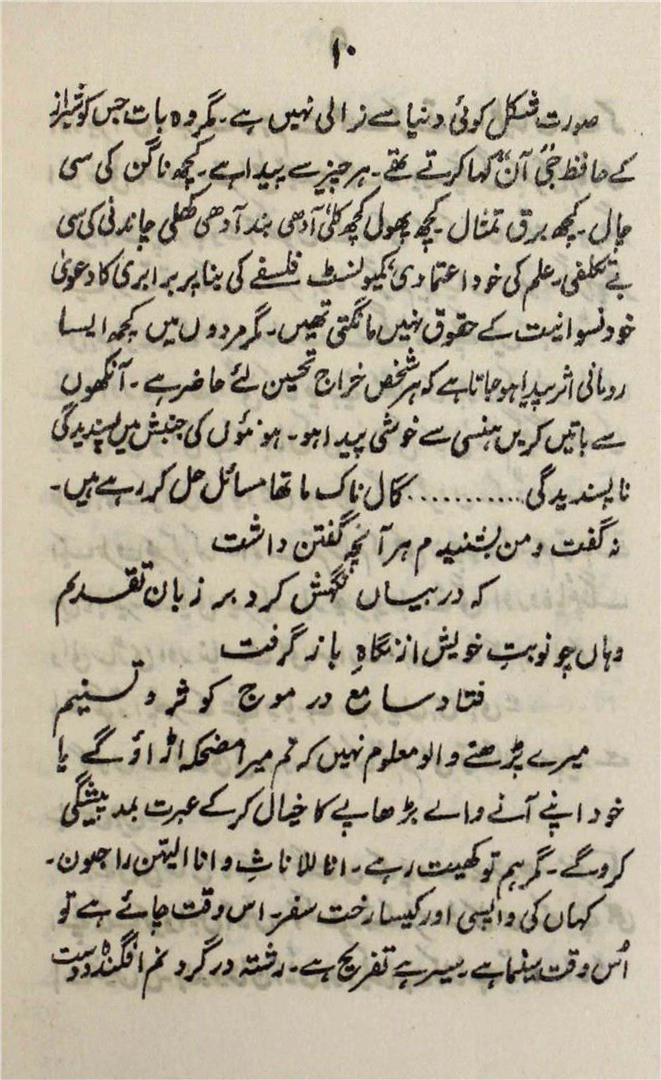 ۱۰
صورت شکل کوئی دنیا سے نرالی نہیں ہے۔ مگر وہ بات جس کو شیراز
کے حافظ جی ”آن“ کہا کرتے تھے۔ ہر چیز سے پیدا ہے۔ کچھ ناگن کی سی
چال۔ کچھ برق تمثال۔ کچھ پھول کچھ کلی، آدھی بند آدھی کھلی چاندنی کی سی
بے تکلفی، علم کی خود اعتمادی، کمیونسٹ فلسفے کی بنا پر برابری کا دعویٰ
خود نسوانیت کے حقوق نہیں مانگتی تھیں۔ مگر مردوں میں کچھ ایسا
رومانی اثر پیدا ہو جاتا ہے کہ ہر شخص خراج تحسین لئے حاضر ہے۔ آنکھوں
سے باتیں کریں ہنسی سے خوشی پیدا ہو۔ ہونٹوں کی جنبش میں پسندیدگی
ناپسندیدگی .......... گال ناک ماتھا مسائل حل کر رہے ہیں۔
نہ گفت و من بشنیدم ہر آنچہ گفتن داشت
کہ در بیاں نگہش کرد بر زبان تقدیم
وہاں چو نوبتِ خویش از نگاہِ باز گرفت
فتاد سامع در موج کوثر و تسنیم
میرے پڑھنے والو معلوم نہیں کہ تم میرا مضحکہ اڑاؤ گے یا
خود اپنے آنے والے بڑھاپے کا خیال کرکے عبرت بمد پیشگی
کروگے۔ مگر ہم تو کھیت رہے۔ انا للاناثِ و انا الیہن راجعون۔
کہاں کی واپسی اور کیسا رخت سفر۔ اس وقت چائے ہے تو
اُس وقت سینما ہے۔ سیر ہے تفریح ہے۔ رشتہ در گردنم افگندہ دوست